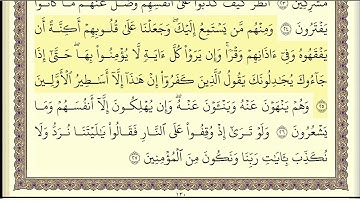 مُشْرِكِينَ ٢٣ ٱنظُرْ كَيْفَ كَذَبُوا۟ عَلَىٰٓ أَنفُسِهِمْ وَضَلَّ عَنْهُم مَّا كَانُوا۟
يَفْتَرُونَ ٢٤ وَمِنْهُم مَّن يَسْتَمِعُ إِلَيْكَ ۖ وَجَعَلْنَا عَلَىٰ قُلُوبِهِمْ أَكِنَّةً أَن
يَفْقَهُوهُ وَفِىٓ ءَاذَانِهِمْ وَقْرًا ۚ وَإِن يَرَوْا۟ كُلَّ ءَايَةٍ لَّا يُؤْمِنُوا۟ بِهَا ۚ حَتَّىٰٓ إِذَا
جَآءُوكَ يُجَٰدِلُونَكَ يَقُولُ ٱلَّذِينَ كَفَرُوٓا۟ إِنْ هَٰذَآ إِلَّآ أَسَٰطِيرُ ٱلْأَوَّلِينَ
٢٥ وَهُمْ يَنْهَوْنَ عَنْهُ وَيَنْـَٔوْنَ عَنْهُ ۖ وَإِن يُهْلِكُونَ إِلَّآ أَنفُسَهُمْ وَمَا
يَشْعُرُونَ ٢٦ وَلَوْ تَرَىٰٓ إِذْ وُقِفُوا۟ عَلَى ٱلنَّارِ فَقَالُوا۟ يَٰلَيْتَنَا نُرَدُّ وَلَا
نُكَذِّبَ بِـَٔايَٰتِ رَبِّنَا وَنَكُونَ مِنَ ٱلْمُؤْمِنِينَ ٢٧
١٣٠